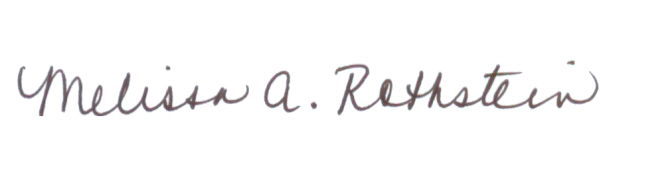 Melissa A. Rothstein